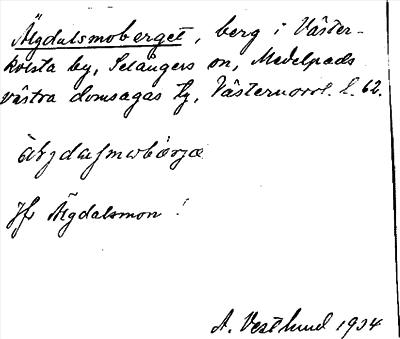 Älgdalsmoberget, berg i Väster-
kvista by, Selångers sn, Medelpads
västra domsagas tg, Västernorrl. l. 62.
Jfr Älgdalsmon !
A. Vestlund 1934